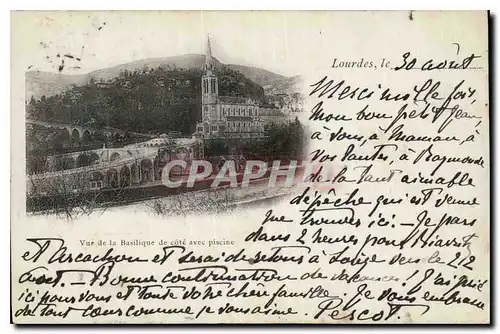 Lourdes, le 30 août
Merci mille fois,
mon bon petit Jean,
à vous, à Maman, à
vos tantes, à Raymonde
de la tant aimable
dépêche qui est venue
me trouver ici. - Je pars
dans 2 heures pour Biarritz
et Arcachon et serai de retour à vers le 2/12
août. - Bonne continuation de vacances! J'ai prié
ici pour vous et toute votre chère famille. Je vous embrasse
de tout cœur comme je vous aime. Pescot
CPARAMA.COM
Vue de la Basilique de côté avec piscine